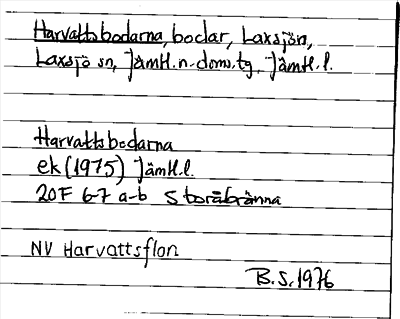 Harvattsbodarna, bodar, Laxsjön,
Laxsjö sn, Jämtl.n. doms.tg, Jämtl.l.
Harvattsbodarna
ek (1975) Jämtl.l.
20F 6-7 a-b Storåbränna
NV Harvattsflon
B.S. 1976